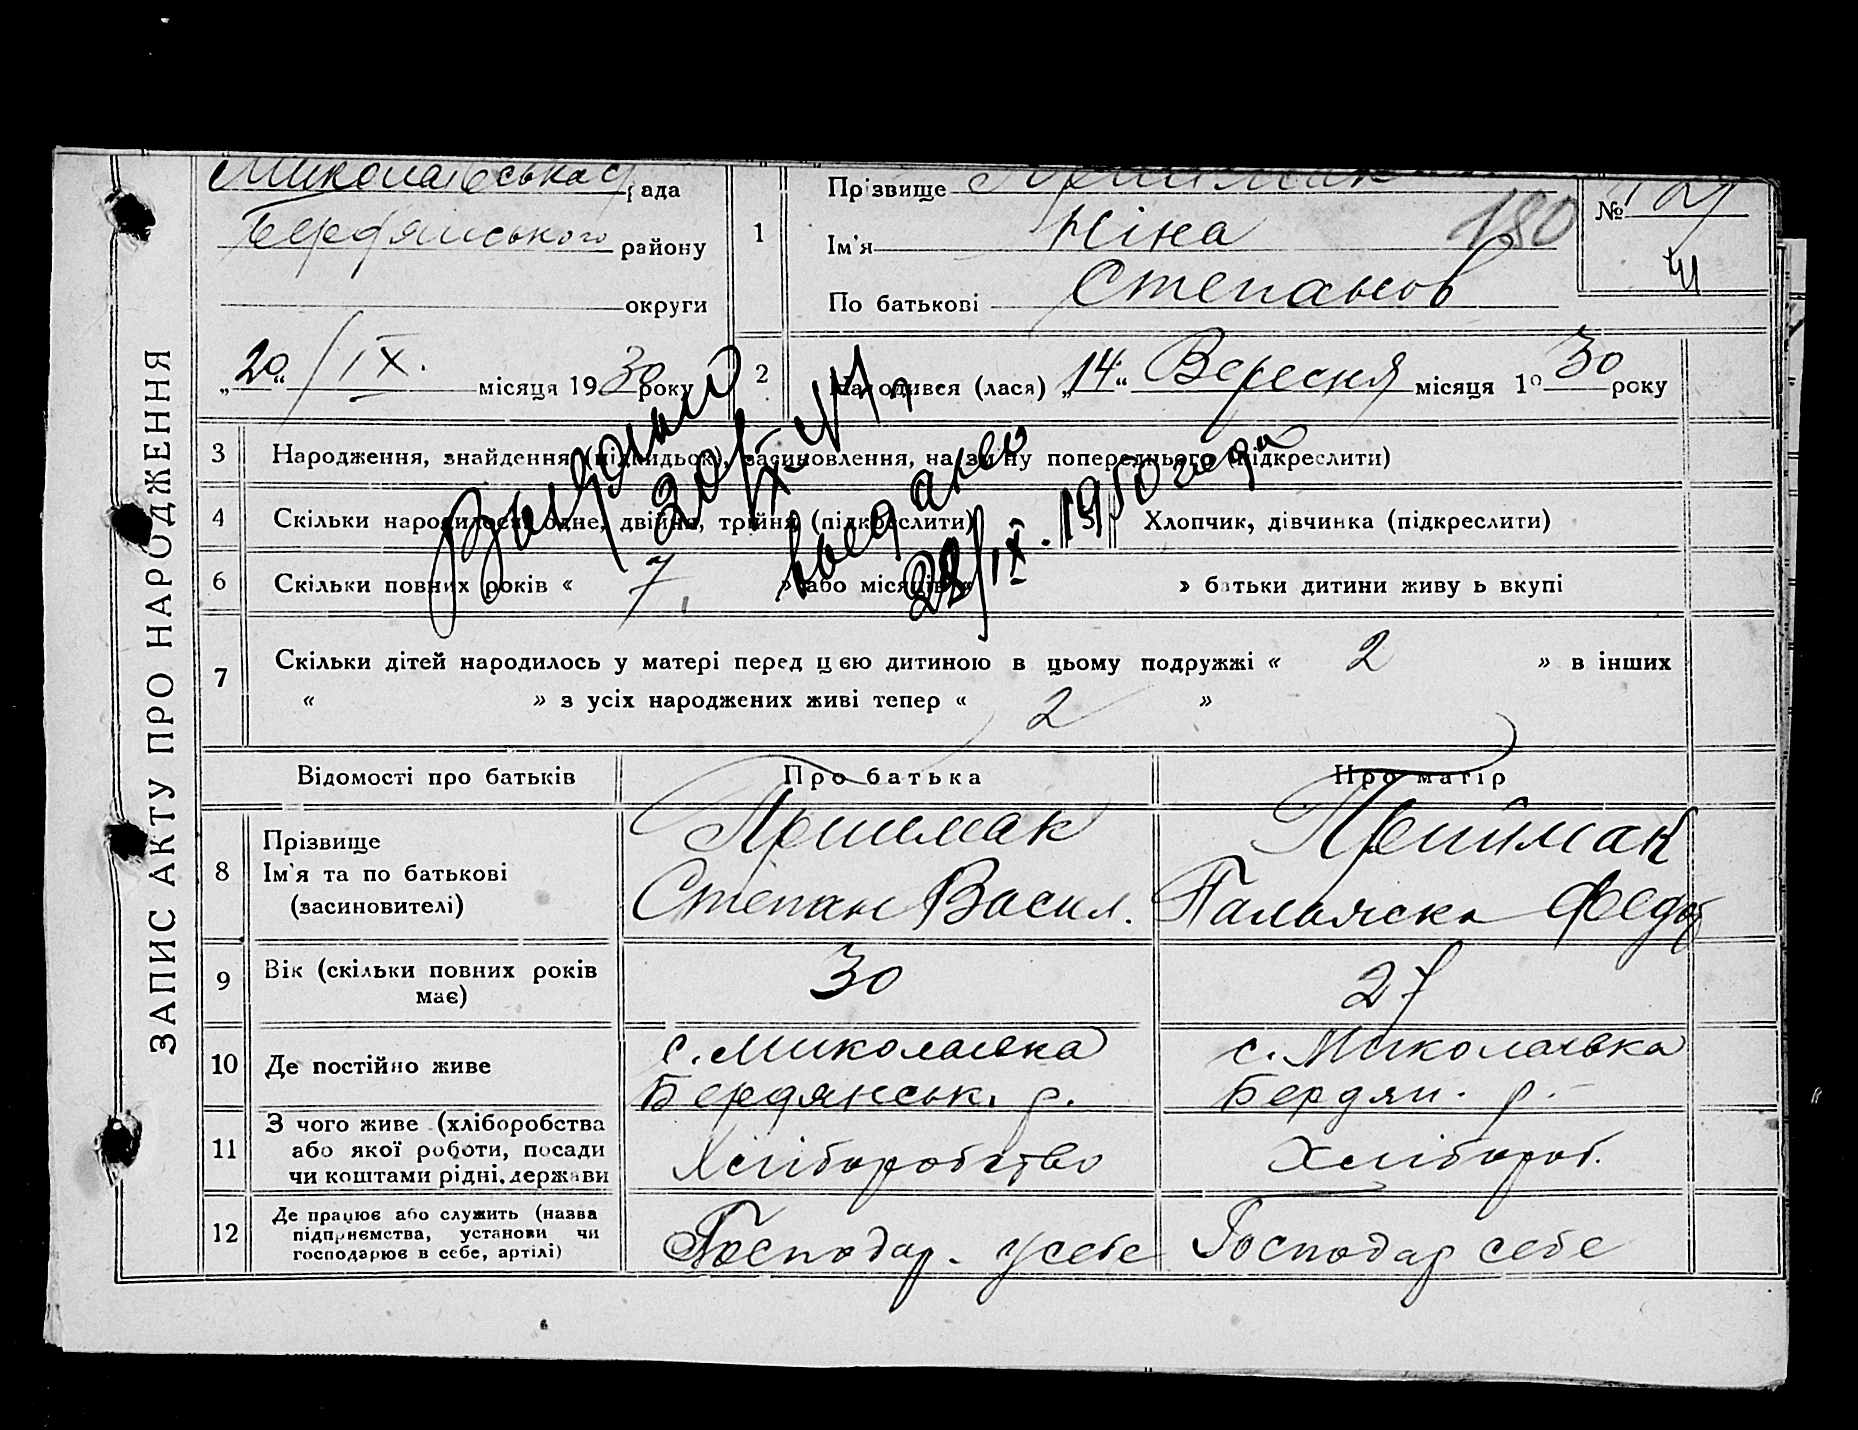 ЗАПИС АКТУ ПРО НАРОДЖЕННЯ
Миколаївська рада
Бердянського району
округи
„20“ / IX. місяця 1930 року
1 Прізвище Приймак
Ім'я Ніна
По батькові Степанов
180
№
2 Народився (лася) „14“ Вересня місяця 1930 року
3 Народження, знайдення (підкидьок), засиновлення, на зміну попереднього (підкреслити)
4 Скільки народилося: одне, двійня, трійня (підкреслити)
Хлопчик, дівчинка (підкреслити)
6 Скільки повних років « 7 » або місяців « » батьки дитини живуть вкупі
7 Скільки дітей народилось у матері перед цією дитиною в цьому подружжі « 2 » в інших
« » з усіх народжених живі тепер « 2 »
Выдано
20/IX-
28/IX. 1950 года
Відомості про батьків Про батька Про матір
8 Прізвище
Ім'я та по батькові
(засиновителі)
Приймак
Степан Васил.
Приймак
Палажска Федот
9 Вік (скільки повних років
має)
30
27
10 Де постійно живе
с. Миколаївка
Бердянськ. р.
с. Миколаївка
Бердян. р.
11 З чого живе (хліборобства
або якої роботи, посади
чи коштами рідні, держави
Хліборобство
Хлібороб.
12 Де працює або служить (назва
підприємства, установи чи
господарює в себе, артілі)
Господар. у себе
Господар себе